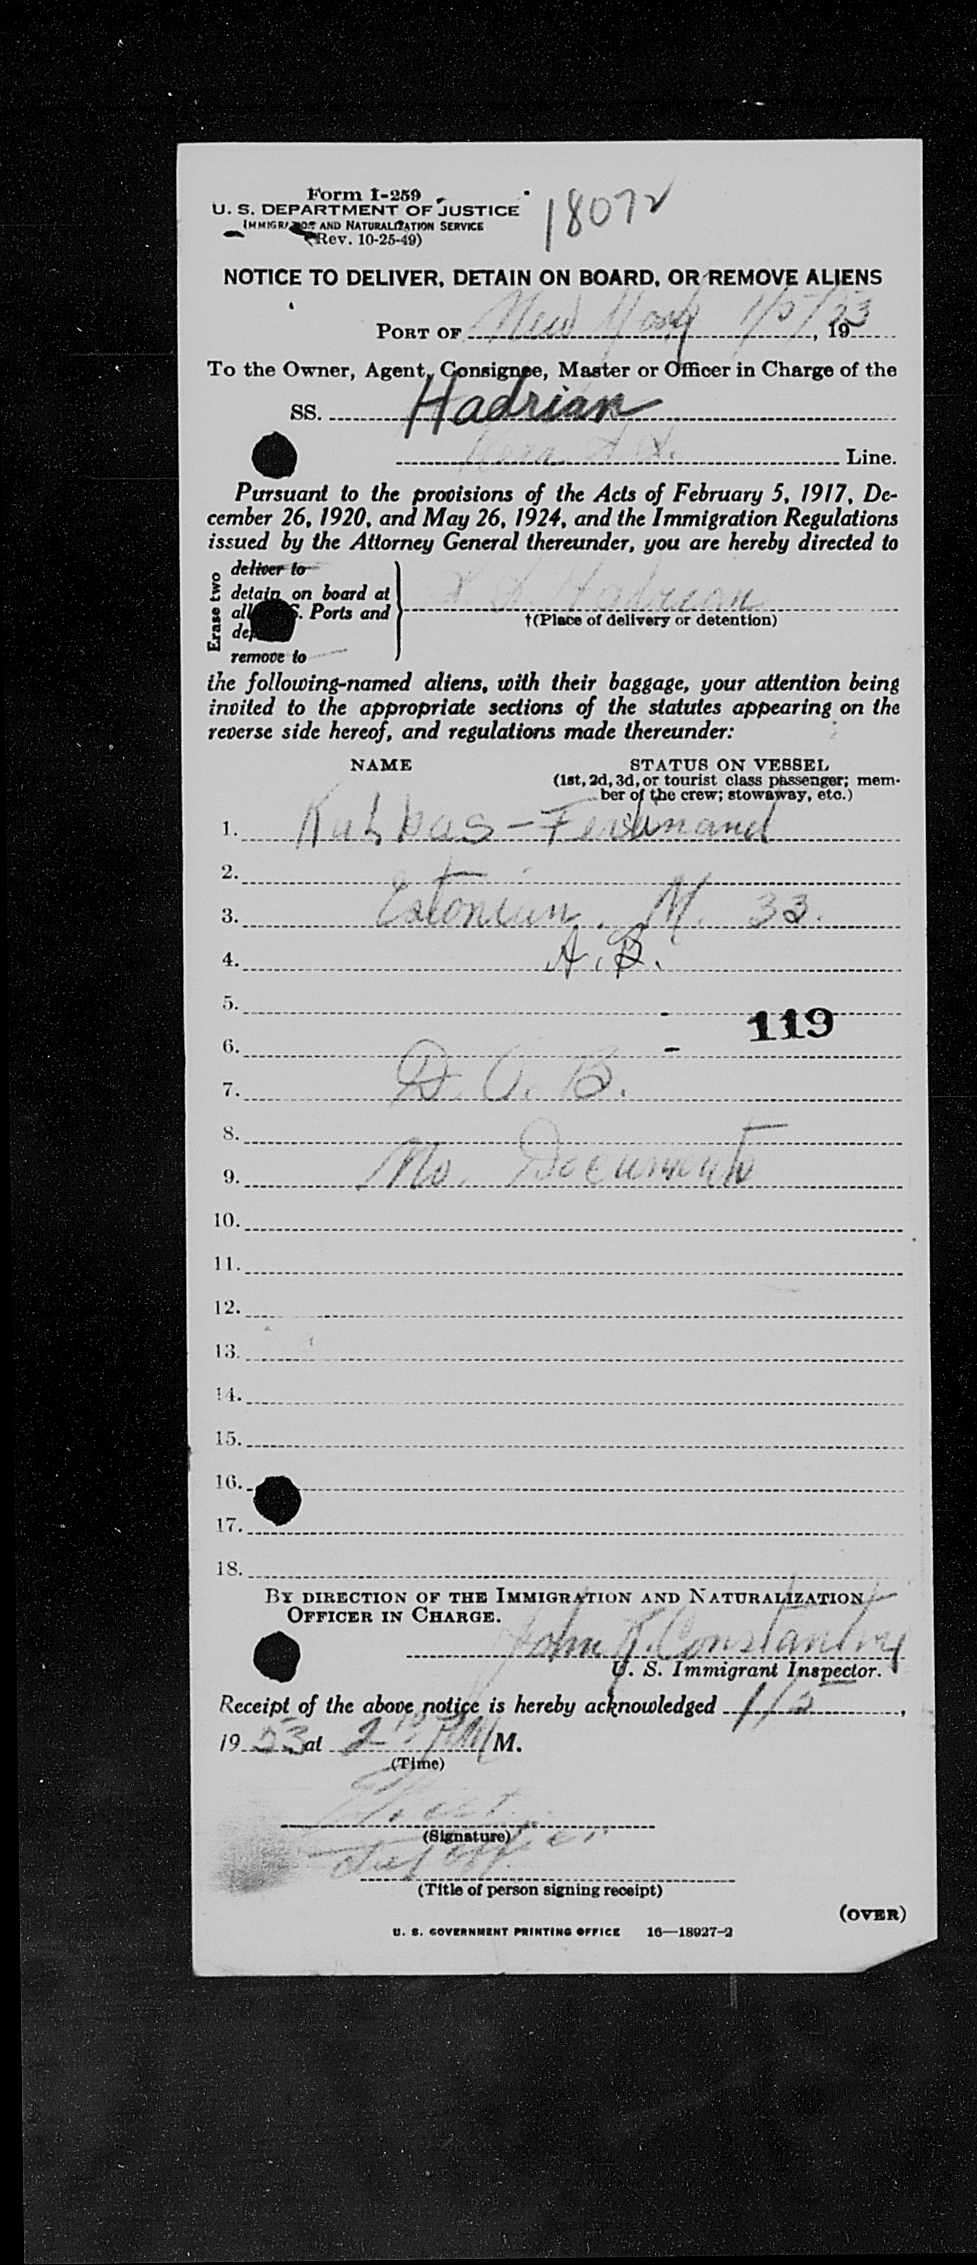 Form I-259
U. S. DEPARTMENT OF JUSTICE
IMMIGRATION AND NATURALIZATION SERVICE
(Rev. 10-25-49)
18072
NOTICE TO DELIVER, DETAIN ON BOARD, OR REMOVE ALIENS
PORT OF New York 1/5/53, 19
To the Owner, Agent, Consignee, Master or Officer in Charge of the
SS. Hadrian
Line.
Pursuant to the provisions of the Acts of February 5, 1917, De-
cember 26, 1920, and May 26, 1924, and the Immigration Regulations
issued by the Attorney General thereunder, you are hereby directed to
Erase two
deliver to
detain on board at
all U.S. Ports and
remove to
S S Hadrian
†(Place of delivery or detention)
the following-named aliens, with their baggage, your attention being
invited to the appropriate sections of the statutes appearing on the
reverse side hereof, and regulations made thereunder:
NAME STATUS ON VESSEL
(1st, 2d, 3d, or tourist class passenger; mem-
ber of the crew; stowaway, etc.)
1. Ferdinand
2.
3. Estonian. M. 33.
4. A.B.
5.
119
6.
7. D.O.B.
8.
9. No. Documents
10.
11.
12.
13.
14.
15.
16.
17.
18.
BY DIRECTION OF THE IMMIGRATION AND NATURALIZATION
OFFICER IN CHARGE.
John K.
U. S. Immigrant Inspector.
Receipt of the above notice is hereby acknowledged 1/5,
19 53 at 2 PM M.
(Time)
(Signature)
(Title of person signing receipt)
(OVER)
U. S. GOVERNMENT PRINTING OFFICE 16—18927-2